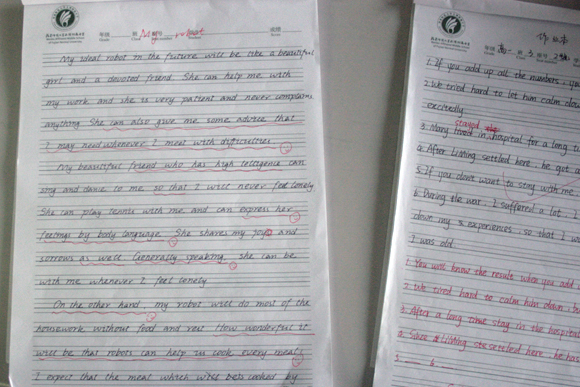 年级 班 姓名 成绩
My robot
My ideal robot in the future will be like a beautiful
girl and a devoted friend. She can help me with
my work and she is very patient and never complains
anything She can also give me some advice that
I may need whenever I meet with difficulties
My beautiful friend who has high telligence can
sing and dance to me so that I will never feel lonely
She can play tennis with me and can express her
feelings by body language. She shares my joys and
sorrows as well Generally speaking she can be
with me whenever I feel lonely
On the other hand, my robot will do most of the
housework without food and rest How wonderful it
will be that robots can help us cook every meal
I expect that the meal which cooked by
作业本
1. If you add up all the numbers, you
2. We tried hard to let him calm down
excitedly
stayed
3. Mary lived in hospital for a long
4. After settled here, he got a
5. If you don't want to stay with me
6. During the war, I suffered a lot. I
down my experiences, so that I w
I was old.
1. You will know the result when you add
2. We tried hard to calm him down
3. After a long time stay in the hospital
4. Since settled here, he has
5. 6.